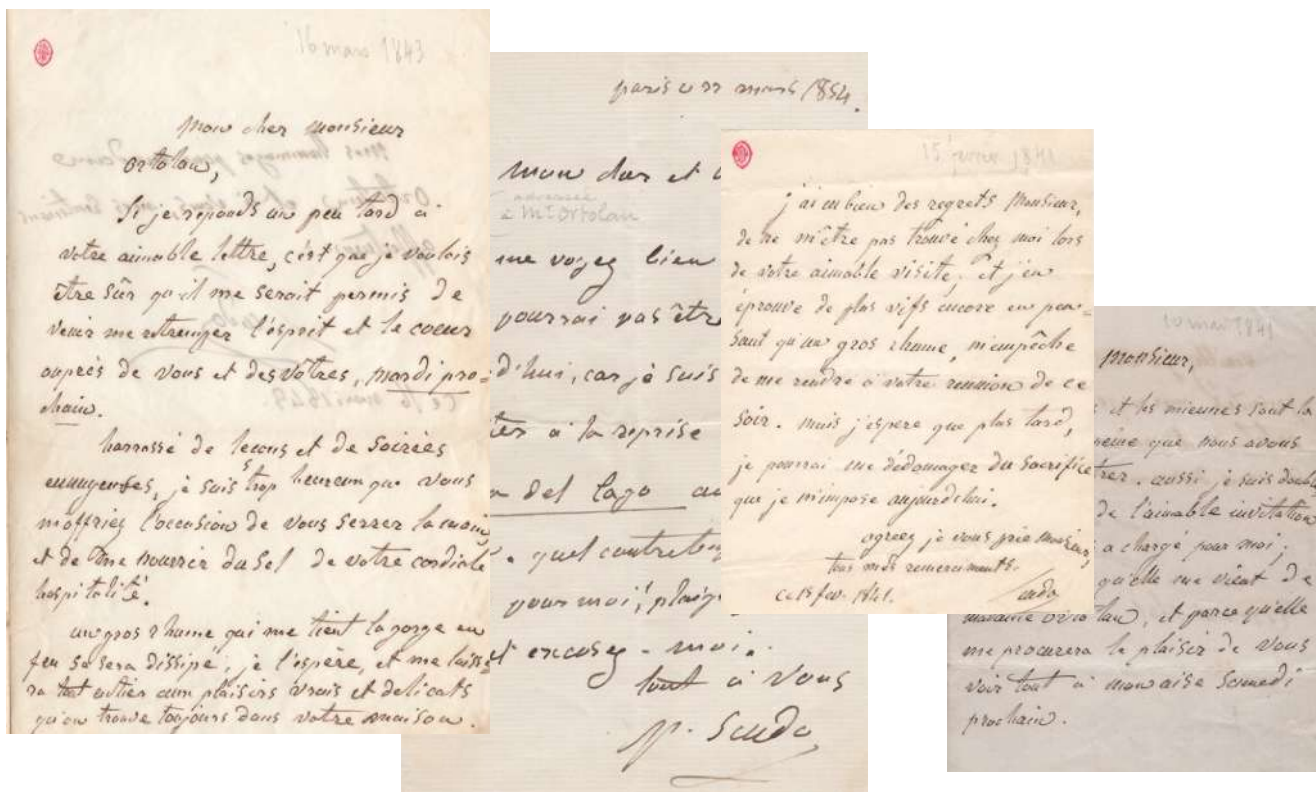 16 mars 1843
mon cher monsieur
ortolan,
Si je réponds un peu tard à
votre aimable lettre, c'est que je voulois
être sûr qu'il me seroit permis de
venir me retremper l'esprit et le coeur
auprès de vous et des vôtres, mardi pro-
chain.
harrassé de lecons et de soirées
ennuyeuses, je suis trop heureux que vous
m'offriez l'occasion de vous serrer la main,
et de me nourrir du sel de votre cordiale
hospitalité.
un gros rhume qui me tient la gorge en
feu se sera dissipé, je l'espère, et me laisse-
ra tout entier aux plaisirs vrais et delicats
qu'on trouve toujours dans votre maison.
paris ce 22 mars 1854.
mon cher et
adressée
à Mr Ortolan
me voyez bien
pourrai pas être
d'hui, car je suis
à la reprise
del Lago au
quel contretems
pour moi! plaig
et excusez-moi.
tout à vous
p. Scudo
15 février 1841
j'ai eu bien des regrets Monsieur,
de ne m'être pas trouvé chez moi lors
de votre aimable visite; et j'en
éprouve de plus vifs encore en pen-
sant qu'un gros rhume, m'empêche
de me rendre à votre reunion de ce
soir. mais j'espere que plus tard,
je pourrai me dédomager du sacrifice
que je m'impose aujourdhui.
agreez je vous prie Monsieur,
tous mes remerciments.
Ce 15 fev. 1841. Scudo
10 mai 1841
Monsieur,
et les miennes sont
peine que nous avons
trer. aussi je suis
de l'aimable invitation
a chargé pour moi;
qu'elle me vient de
madame ortolan, et parce qu'elle
me procurera le plaisir de vous
voir tout à mon aise Samedi
prochain.